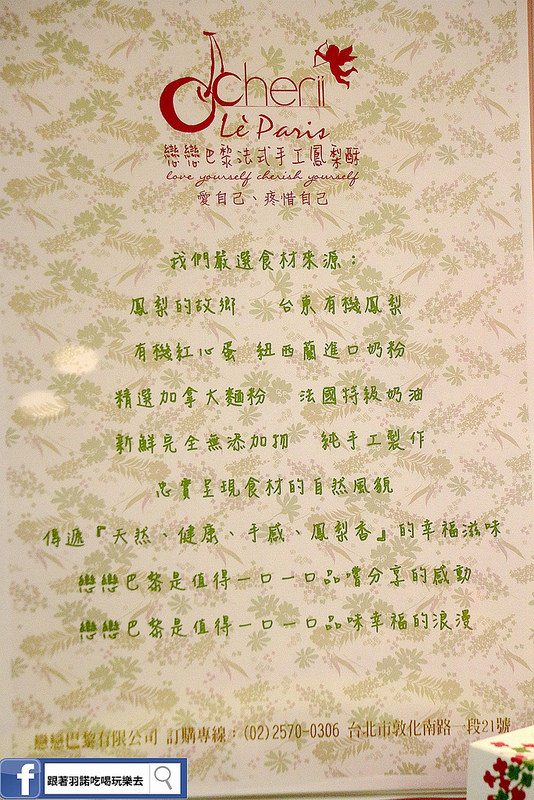 cherii
Lè Paris
戀戀巴黎法式手工鳳梨酥
love yourself cherish yourself
愛自己、疼惜自己
我們嚴選食材來源：
鳳梨的故鄉 台東有機鳳梨
有機紅心蛋 紐西蘭進口奶粉
精選加拿大麵粉 法國特級奶油
新鮮完全無添加物 純手工製作
忠實呈現食材的自然風貌
傳遞『天然、健康、手感、鳳梨香』的幸福滋味
戀戀巴黎是值得一口一口品嚐分享的感動
戀戀巴黎是值得一口一口品味幸福的浪漫
戀戀巴黎有限公司 訂購專線：(02)2570-0306 台北市敦化南路一段21號
f 跟著羽諾吃喝玩樂去